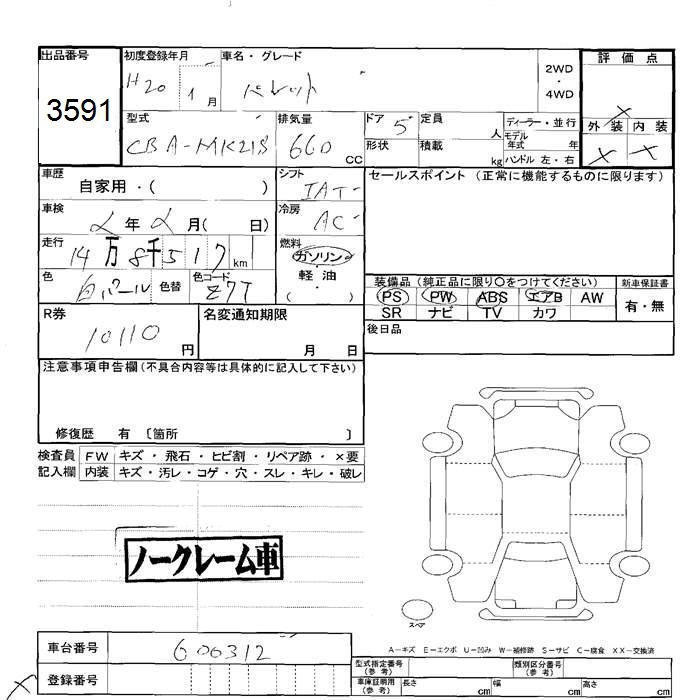 出品番号
3591
初度登録年月
H20 1月
車名・グレード
パレット
2WD
・
4WD
評価点
×
外装 内装
× ×
型式
CBA-MK21S
排気量
660 cc
ドア 5
形状
定員 人
積載 kg
ディーラー・並行
モデル年式 年
ハンドル 左・右
車歴
自家用・( )
車検
年 月( 日)
走行
14万8千517km
色
白パール
色替
色コード
Z7T
シフト
IAT
冷房
AC
燃料
ガソリン
・
軽油
( )
セールスポイント (正常に機能するものに限ります)
装備品 (純正品に限り○をつけてください)
PS PW ABS エアB AW
SR ナビ TV カワ
新車保証書
有・無
後日品
R券
10110円
名変通知期限
月 日
注意事項申告欄(不具合内容等は具体的に記入して下さい)
修復歴 有 〔箇所 〕
検査員 FW キズ・飛石・ヒビ割・リペア跡・×要
記入欄 内装 キズ・汚レ・コゲ・穴・スレ・キレ・破レ
ノークレーム車
スペア
A-キズ E-エクボ U-凹み W-補修跡 S-サビ C-腐食 XX-交換済
車台番号
600312
登録番号
型式指定番号(参考)
類別区分番号(参考)
車庫証明用(参考) 長さ cm 幅 cm 高さ cm